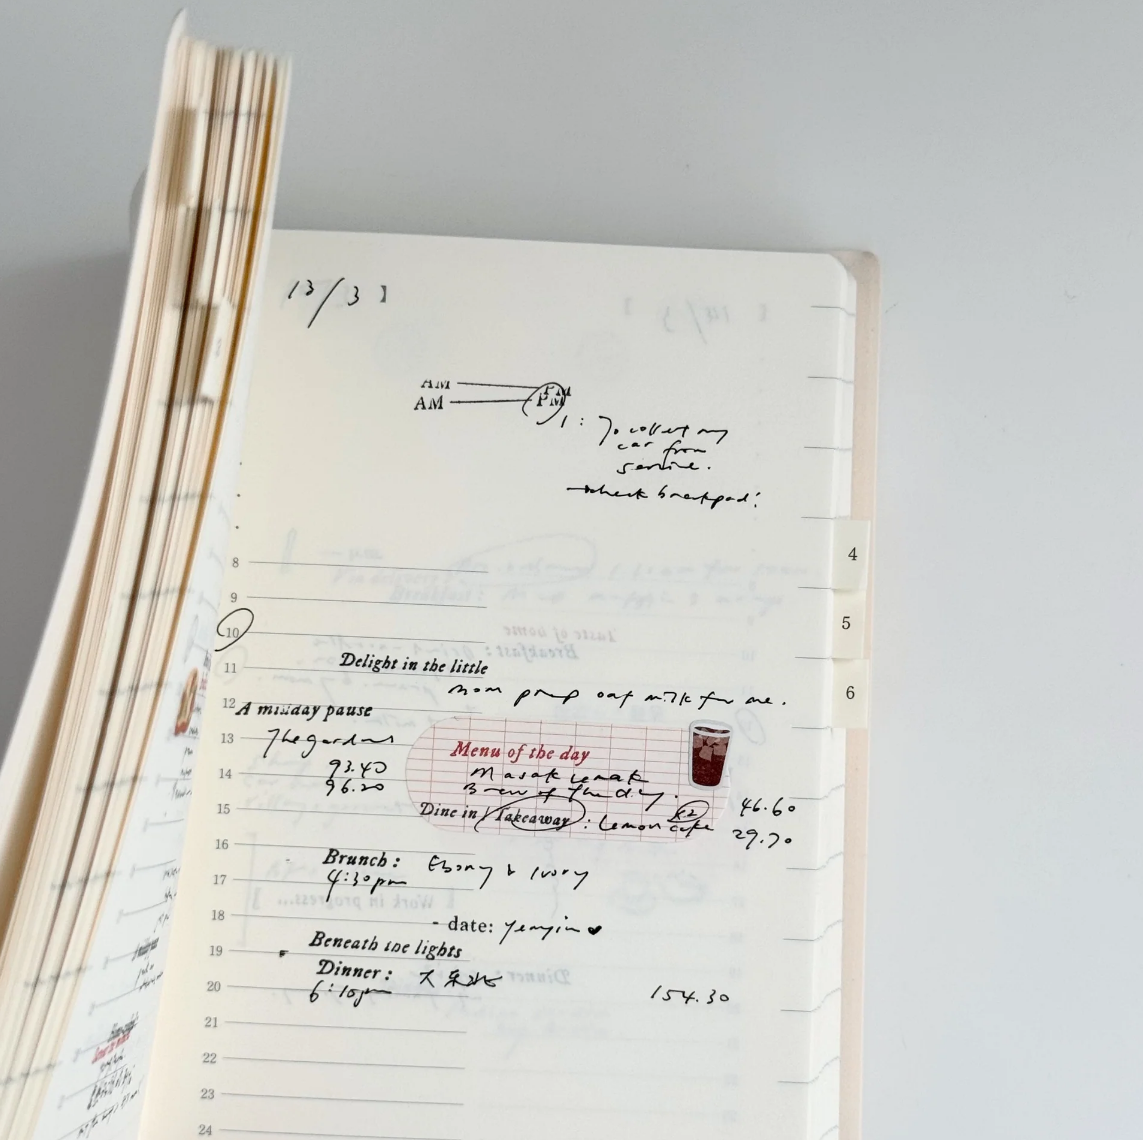 13/3 】
AM PM
AM PM
1: To collect my
car from
service.
→check breakpad!
4
5
6
8
9
10
11
Delight in the little
mom prep oat milk for me.
12
A midday pause
13
The gardens
93.40
14
96.20
Menu of the day
Masak Lemak
Brew of the day.
46.60
15
Dine in / Takeaway : Lemon cake x2
29.70
16
Brunch: Ebony & Ivory
17
4:30pm
18
- date: yenyin
19
Beneath the lights
Dinner:
20
6:10pm
154.30
21
22
23
24